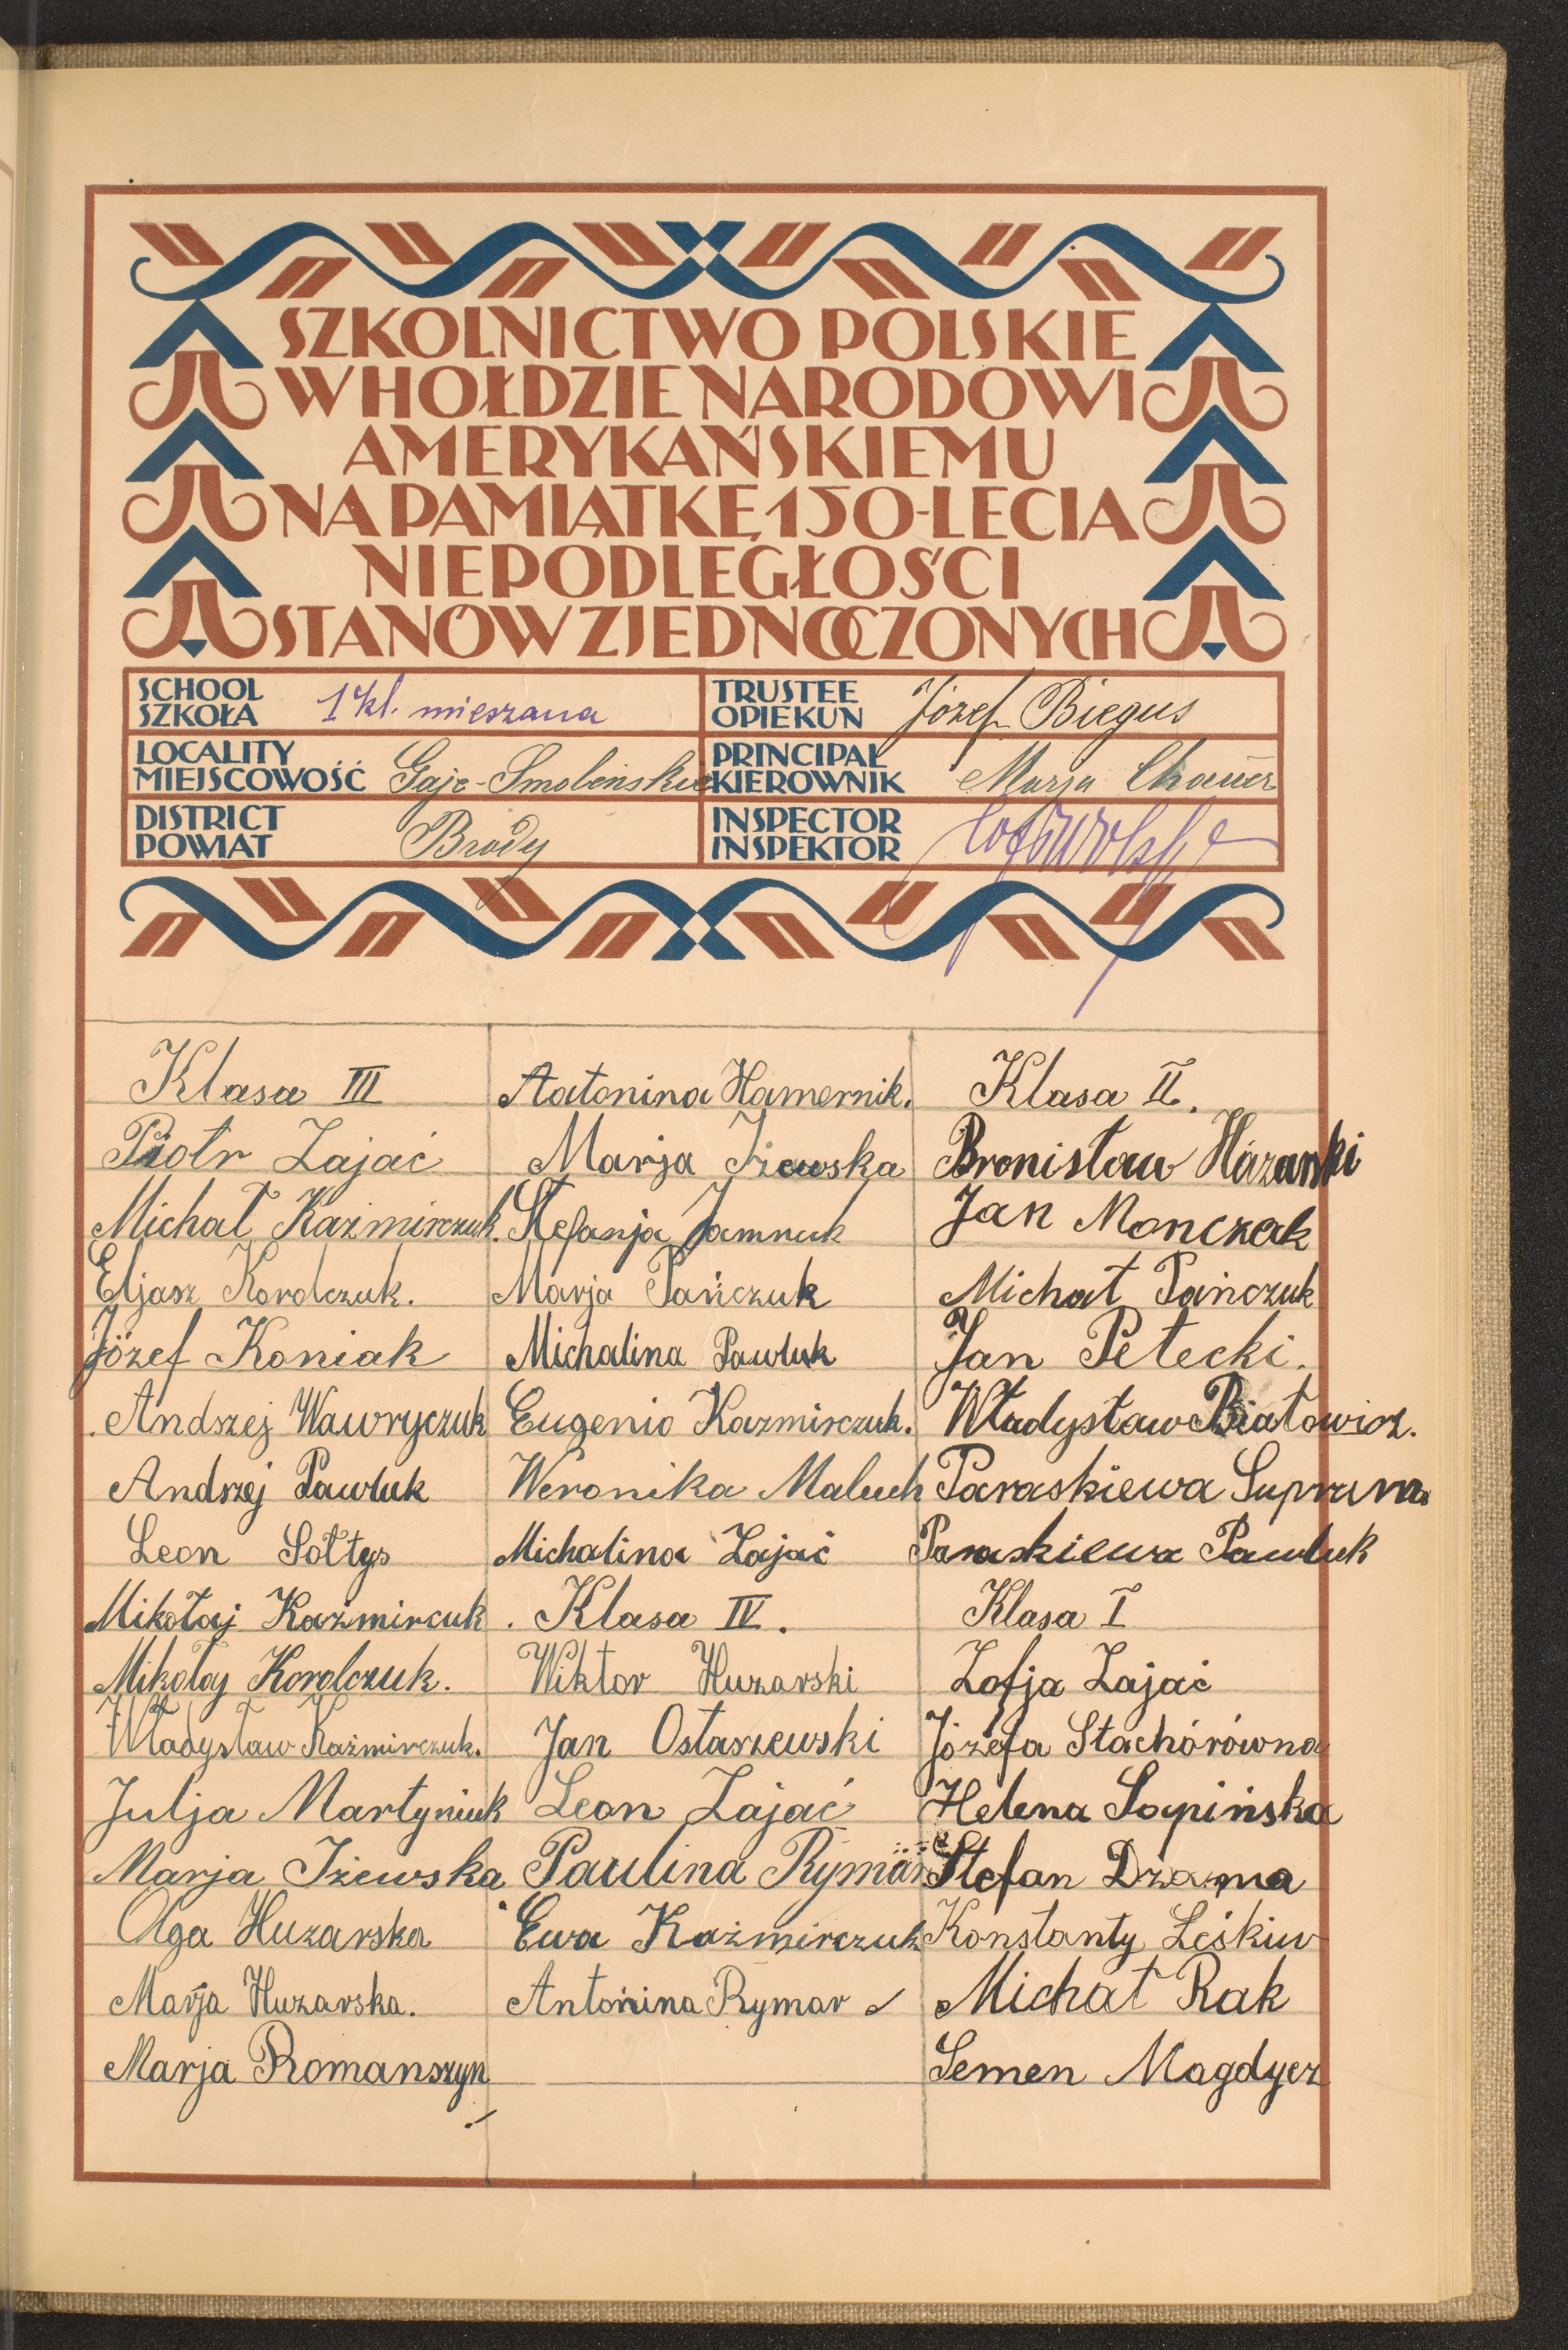 SZKOLNICTWO POLSKIE
W HOŁDZIE NARODOWI
AMERYKAŃSKIEMU
NA PAMIĄTKĘ 150-LECIA
NIEPODLEGŁOŚCI
STANÓW ZJEDNOCZONYCH
SCHOOL
SZKOŁA
1 kl. mieszana
TRUSTEE
OPIEKUN
Józef Biegus
LOCALITY
MIEJSCOWOŚĆ
Gaje-Smoleńskie
PRINCIPAL
KIEROWNIK
Marja
DISTRICT
POWIAT
Brody
INSPECTOR
INSPEKTOR
Klasa III
Piotr Zając
Michał Kazmirczuk.
Eljasz Korolczuk.
Józef Koniak
Andszej Wawryczuk
Andrzej Pawluk
Leon Sołtys
Mikołaj Kaźmircuk
Mikołaj Korolczuk.
Władysław Kaźmirczuk.
Julja Martyniuk
Marja Iżewska
Olga Huzarska
Marja Huzarska.
Marja Romanszyn
Antonina Hamernik.
Marja Iżewska
Stefanja Jamnuk
Marja Pańczuk
Michalina Pawluk
Eugenia Kazmirczuk.
Weronika Maluch
Michalina Zajać
Klasa IV.
Wiktor Huzarski
Jan Ostaszewski
Leon Zajać
Paulina Rymar
Ewa Kaźmirczuk
Antonina Rymar
Klasa II.
Bronisław
Jan Monczak
Michał Pańczuk
Jan Petecki.
Władysław Białowicz.
Paraskiewa Suprum
Paraskiewa Pawluk
Klasa I
Zofja Zajać
Józefa Stachórówna
Helena Sopińska
Stefan Dzama
Konstanty Leśkiw
Michał Rak
Semen Magdycz